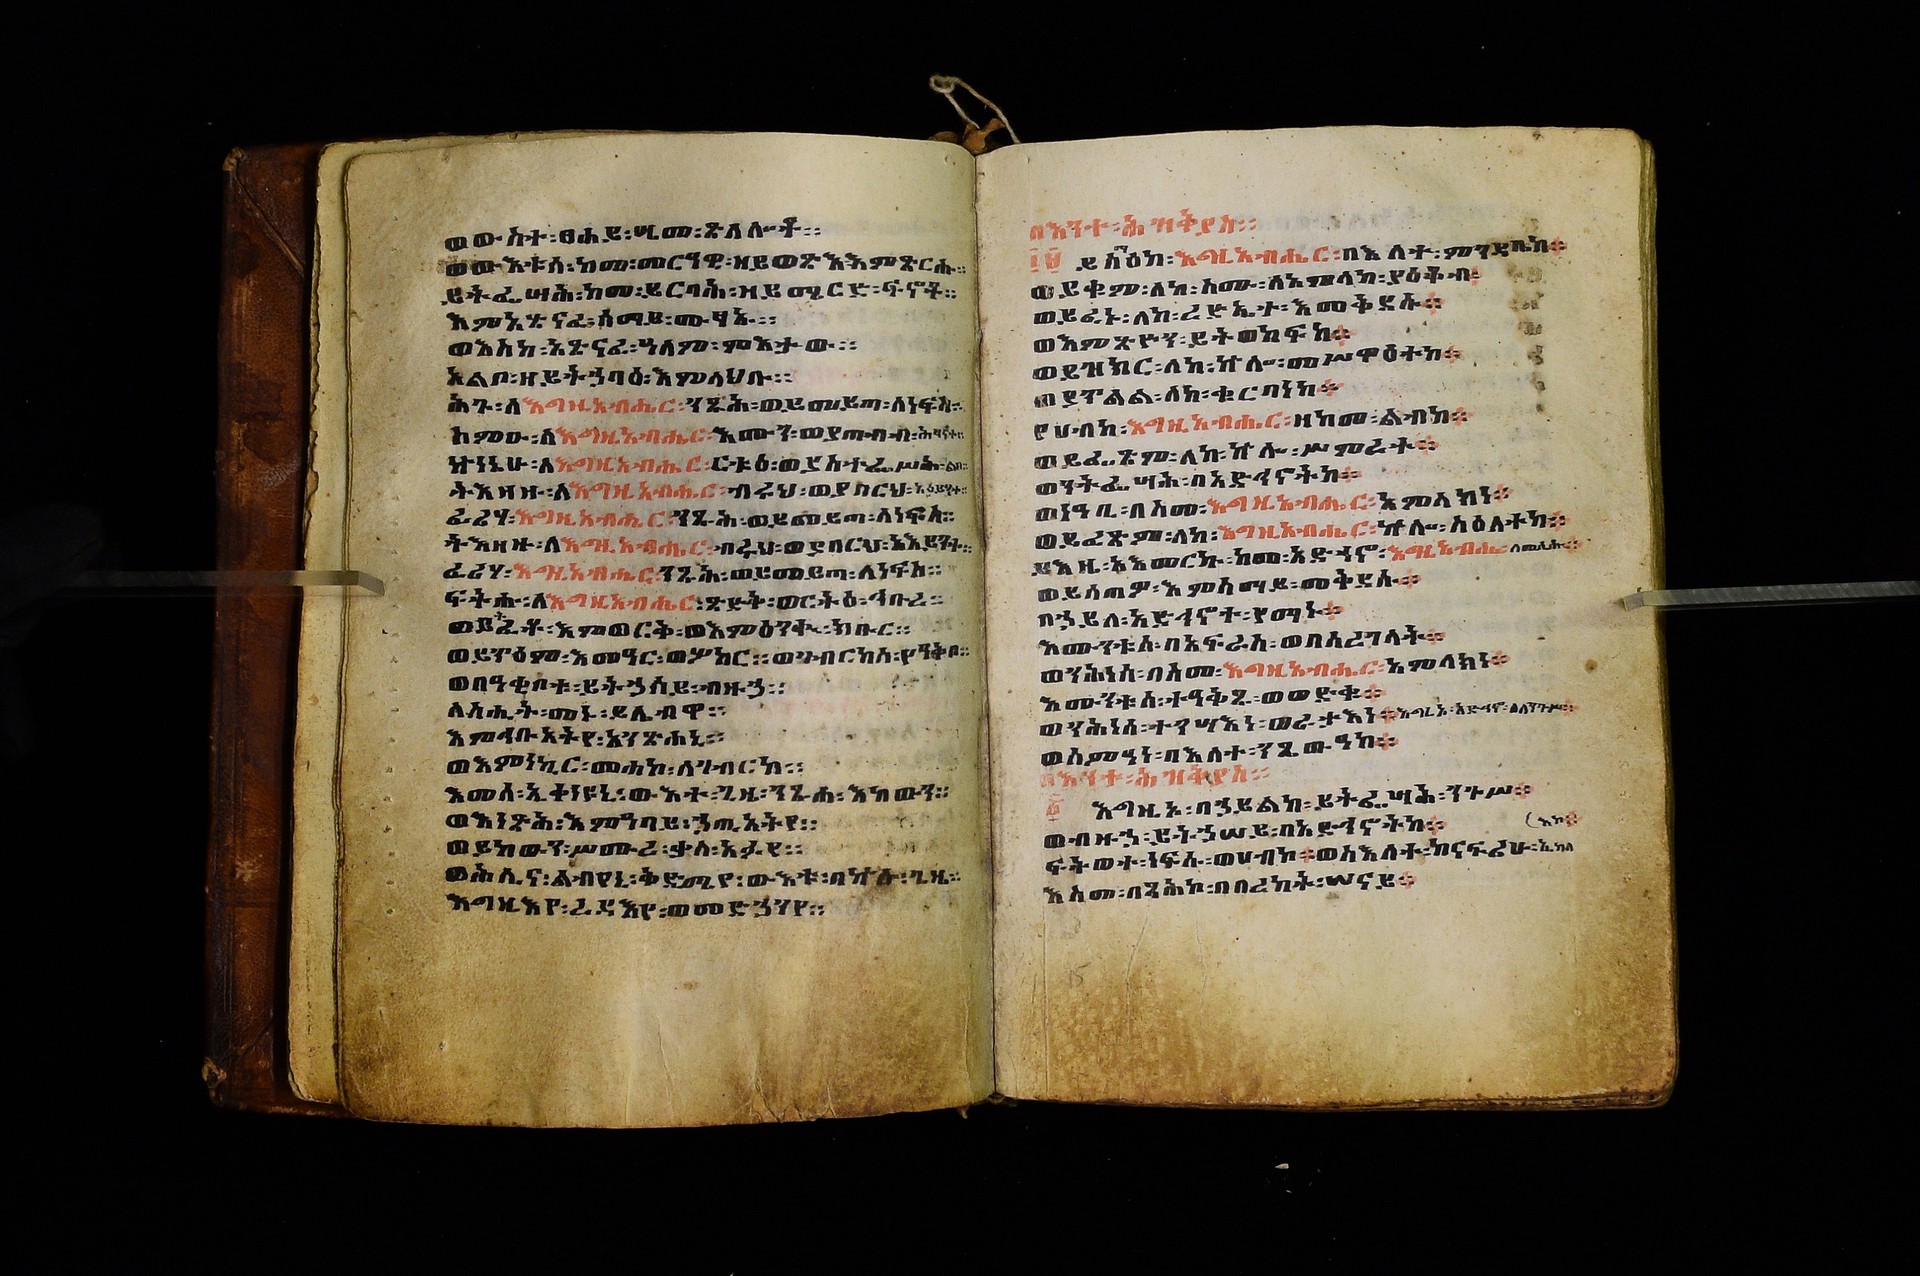 ወውስተ፡ፀሐይ፡ሤመ፡ጽላሎቶ።
ወውእቱሰ፡ከመ፡መርዓዊ፡ዘይወጽእ፡እምጽርሑ።
ይትፌሣሕ፡ከመ፡ይርባሕ፡ዘይመርድ፡ፍኖት።
እምአጽናፈ፡ሰማይ፡ሙፃኡ።
ወእስከ፡አጽናፈ፡ዓለም፡ምእታው።
አልቦ፡ዘይትኀባዕ፡እምላህቡ።
ሕጉ፡ለእግዚአብሔር፡ንጹሕ፡ወይመይጣ፡ለነፍስ።
ስምዑ፡ለእግዚአብሔር፡እሙን፡ወያጠብብ፡ሕፃናተ።
ኵነኔሁ፡ለእግዚአብሔር፡ርቱዕ፡ወያስተፌሥሕ፡ልበ።
ትእዛዙ፡ለእግዚአብሔር፡ብሩህ፡ወያበርህ፡አዕይንተ።
ፈሪሃ፡እግዚአብሔር፡ንጹሕ፡ወይመይጣ፡ለነፍስ።
ትእዛዙ፡ለእግዚአብሔር፡ብሩህ፡ወያበርህ፡አእይንተ።
ፈሪሃ፡እግዚአብሔር፡ንጹሕ፡ወይመይጣ፡ለነፍስ።
ፍትሑ፡ለእግዚአብሔር፡ጽድቅ፡ወርትዕ፡ኅቡረ።
ወይትፈቶ፡እምወርቅ፡ወእምዕንቍ፡ክቡር።
ወይጥዕም፡እመዓር፡ወሦከር። ወገብርከሰ፡የዓቅቦ።
ወበዓቂቦቱ፡ይትኃሰይ፡ብዙኃ።
ለስሒት፡መኑ፡ይሌብዋ።
እምኅቡአትየ፡አንጽሐኒ።
ወእምነኪር፡መሐክ፡ለገብርከ።
እመሰ፡ኢቀነዩኒ፡ውእተ፡ጊዜ፡ንጹሐ፡እከውን።
ወእነጽሕ፡እምዓባይ፡ኃጢአትየ።
ወይከውን፡ሥሙረ፡ቃለ፡አፉየ።
ወሕሊና፡ልብየኒ፡ቅድሜየ፡ውእቱ፡በኵሉ፡ጊዜ።
እግዚእየ፡ረዳእየ፡ወመድኃንየ።
በእንተ፡ሕዝቅያስ።
፲፱ ይስዕከ፡እግዚአብሔር፡በእለተ፡ምንዳቤከ።
ወይቁም፡ለከ፡ስሙ፡ለአምላከ፡ያዕቆብ።
ወይፈኑ፡ለከ፡ረድኤተ፡እመቅደሱ።
ወእምጽዮን፡ይትወከፍከ።
ወይዝክር፡ለከ፡ኵሎ፡መሥዋዕተከ።
ወያጥልል፡ለከ፡ቁርባነከ።
የሀብከ፡እግዚአብሔር፡ዘከመ፡ልብከ።
ወይፈጽም፡ለከ፡ኵሎ፡ሥምረት።
ወንትፌሣሕ፡በአድኅኖትከ።
ወነዓቢ፡በስመ፡እግዚአብሔር፡አምላክነ።
ወይፈጽም፡ለከ፡እግዚአብሔር፡ኵሎ፡ስዕለትከ።
ይእዜ፡አእመርኩ፡ከመ፡አድኅኖ፡እግዚአብሔር፡ለመሲሑ።
ወይሰጠዎ፡እምሰማይ፡መቅደሱ።
በኃይለ፡አድኅኖተ፡የማኑ።
እሙንቱሰ፡በአፍራስ፡ወበሰረገላት።
ወንሕነሰ፡በስመ፡እግዚአብሔር፡አምላክነ።
እሙንቱሰ፡ተዓቅጹ፡ወወድቁ።
ወንሕነሰ፡ተንሣእነ፡ወረታእነ።እግዚኦ፡አድኅኖ፡ለንጉሥ።
ወስምዓነ፡በእለተ፡ንጼውዓከ።
በእንተ፡ሕዝቅያስ።
፳ እግዚኦ፡በኃይልከ፡ይትፌሣሕ፡ንጉሥ።
ወብዙኃ፡ይትኃሠይ፡በአድኅኖትከ።
ፍትወተ፡ነፍሱ፡ወሀብከ።ወስእለተ፡ከናፍሪሁ፡ኢከላ
(እከ።
እስመ፡በጻሕኮ፡በበረከት፡ሠናይ።
15